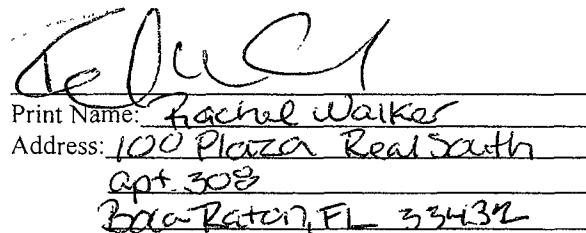 Print Name: Rachel Walker
Address: 100 Plaza Real South
apt. 308
Boca Raton, FL 33432